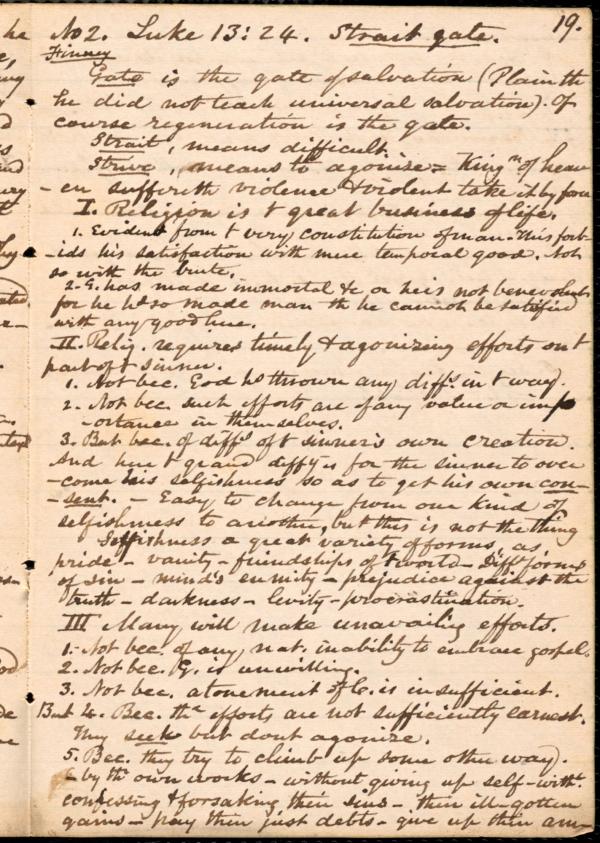 No 2. Luke 13:24. Strait gate. 19.
Finney
Gate is the gate of salvation (Plain th
he did not teach universal salvation). Of
course regeneration is the gate.
Strait, means difficult.
Strive, means to agonize = King^m of heav
-en suffereth violence & violent take it by force
I. Religion is t great business of life.
1. Evident from t very constitution of man. This forb-
-ids his satisfaction with mere temporal good. Not
so with the brute.
2. G. has made immortal &c or he is not benevolent
for he hs so made man th he cannot be satisfied
with any good here.
II. Relig. requires timely & agonizing efforts on t
part of t sinner.
1. Not bec. God hs thrown any diffs. in t way.
2. Not bec. such efforts are of any value or imp
-ortance in themselves.
3. But bec. of diffs of t sinner's own creation.
And here t grand diffty is for the sinner to over
-come his selfishness so as to get his own con-
-sent. - Easy to change from one kind of
selfishness to another, but this is not the thing
Selfishness a great variety of forms, as
pride - vanity - friendships of t world - Difft forms
of sin - mind's enmity - prejudice against the
truth - darkness - levity - procrastination.
III Many will make unavailing efforts.
1. Not bec. of any nat. inability to embrace gospel.
2. Not bec. G. is unwilling.
3. Not bec. atonement of C. is insufficient.
But 4. Bec. thr efforts are not sufficiently earnest.
They seek but dont agonize.
5. Bec. they try to climb up some other way.
- by thr own works - without giving up self - witht.
confessing & forsaking their sins - their ill-gotten
gains - pay their just debts - give up their am-